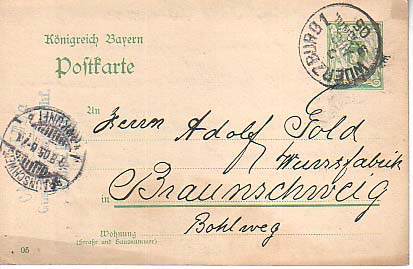 Königreich Bayern
Postkarte
WUERZBURG 1
An
Herrn Adolf Gold
Wurstfabrik
in Braunschweig
Bohlweg
Wohnung
(Straße und Hausnummer)
05